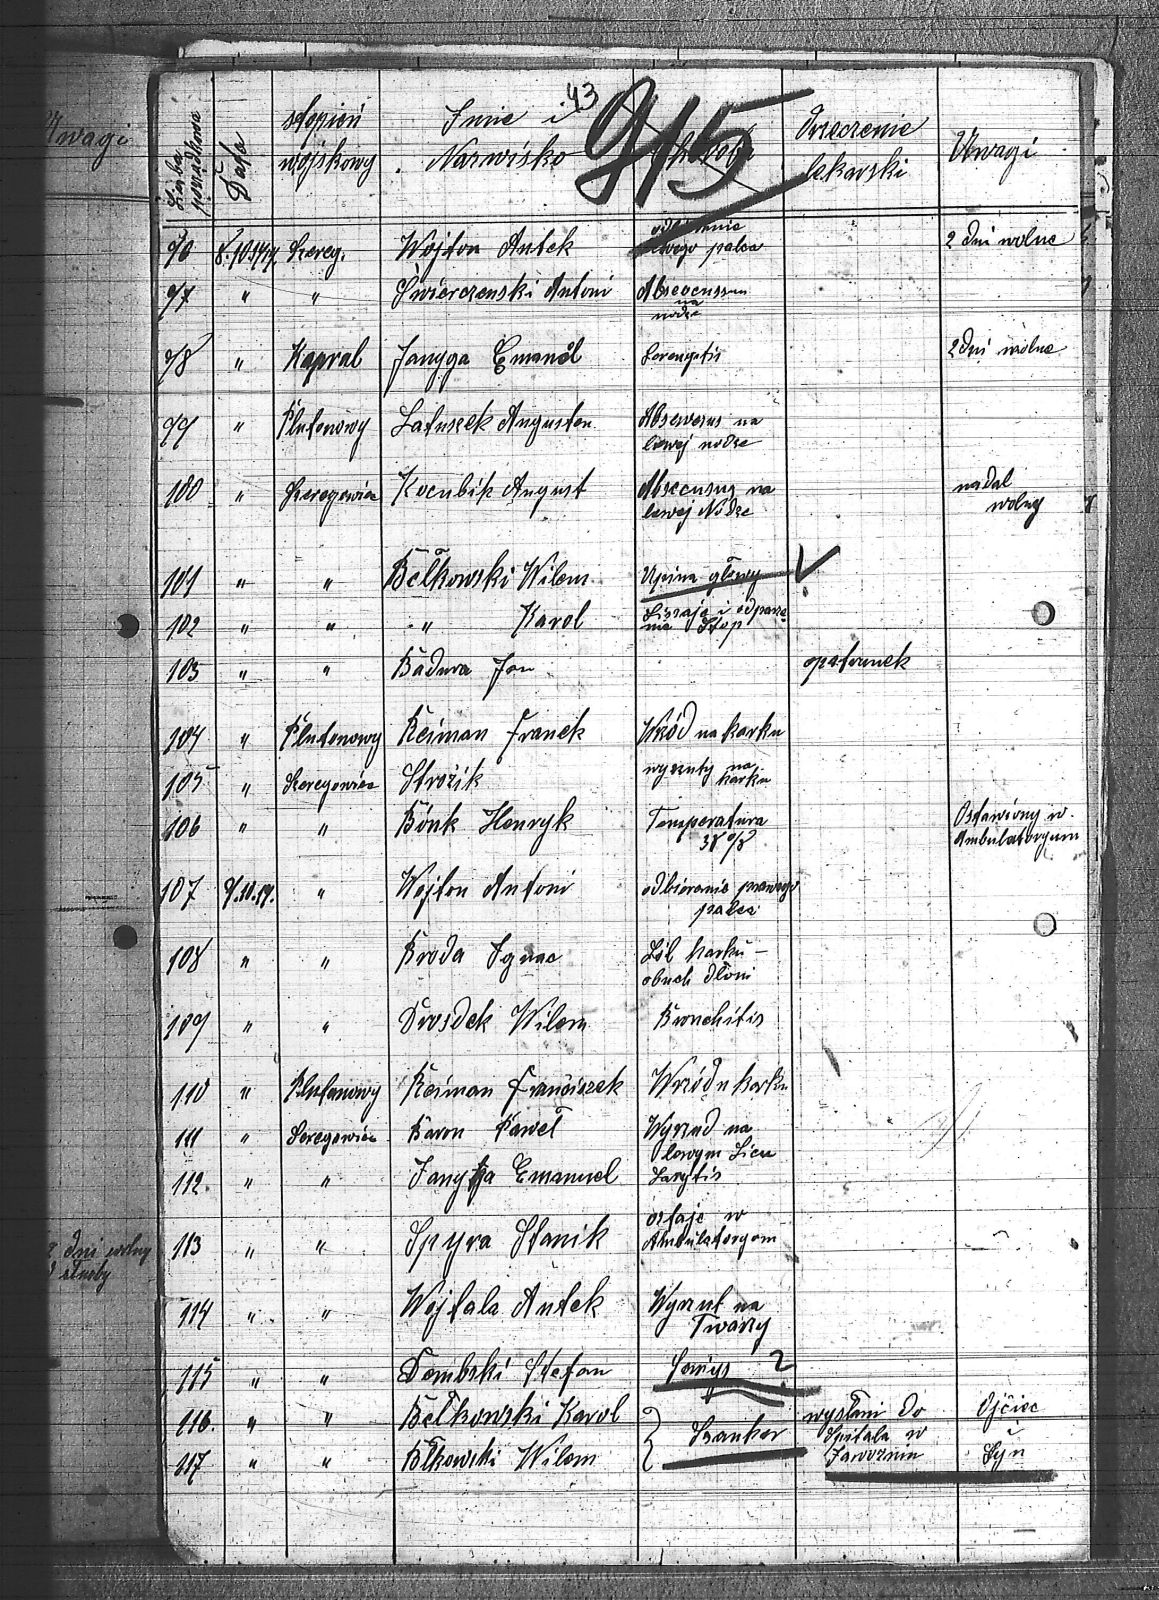 Uwagi
43
915
Liczba porządkowa
Data
stopień wojskowy
Imie i Nazwisko
Choroba
Orzeczenie lekarski
Uwagi
96 8.10.1919. Szereg. Wojton Antek lewego palca 2 dni wolne
97 " " Świerczenski Antoni na nodze
98 " Kapral Jangga Emanöl 2 dni wolne
99 " Plutonowy Latuszek Augusten na lewej nodze
100 " Szeregowiec Kocubik August Absecensus na lewej Nodze nadal wolny
101 " " Bełkowski Wilem głowy
102 " " " Karol Liszaje i odparzenie Stop
103 " " Badura Jon opatrunek
104 " Plutonowy Reiman Franek Wżód na karku
105 " Szeregowiec Strozik wyrzuty na karku
106 " " Bönk Henryk Temperatura 38 % Ostawiony w Ambulatoryum
107 9.10.19. " Wojton Antoni odbieranie prawego palca
108 " " Broda Ignac Ból karku - obuch dłoni
109 " " Drosdek Wilem Bronchitis
110 " Plutonowy Reiman Franciszek Wżód n karku
111 " Szeregowiec Baron Paweł Wyrzud na lewym Licu
112. " " Jangga Emanuel
2 dni wolny
służby
113 " " Spyra Stanik ostaje w Ambulatorgom
114 " " Wojtala Antek Wyrzut na Twarzy
115 " " Dombski Stefan ?
116. " " Bełkowski Karol } Szanker wysłani do Spitala w Jaworznie Ojciec i Syn
117 " " Błkowski Wilem